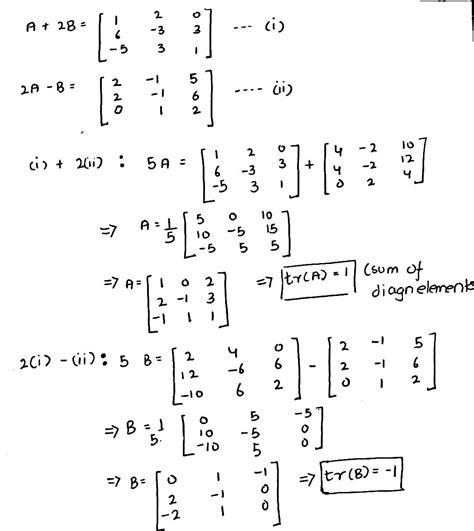 A + 2B = [ 1 2 0 ; 6 -3 3 ; -5 3 1 ] --- (i)
2A - B = [ 2 -1 5 ; 2 -1 6 ; 0 1 2 ] ---- (ii)
(i) + 2(ii) : 5A = [ 1 2 0 ; 6 -3 3 ; -5 3 1 ] + [ 4 -2 10 ; 4 -2 12 ; 0 2 4 ]
⇒ A = 1/5 [ 5 0 10 ; 10 -5 15 ; -5 5 5 ]
⇒ A = [ 1 0 2 ; 2 -1 3 ; -1 1 1 ] ⇒ tr(A) = 1 (sum of
diagn elements
2(i) - (ii) : 5 B = [ 2 4 0 ; 12 -6 6 ; -10 6 2 ] - [ 2 -1 5 ; 2 -1 6 ; 0 1 2 ]
⇒ B = 1/5. [ 0 5 -5 ; 10 -5 0 ; -10 5 0 ]
⇒ B = [ 0 1 -1 ; 2 -1 0 ; -2 1 0 ] ⇒ tr(B) = -1